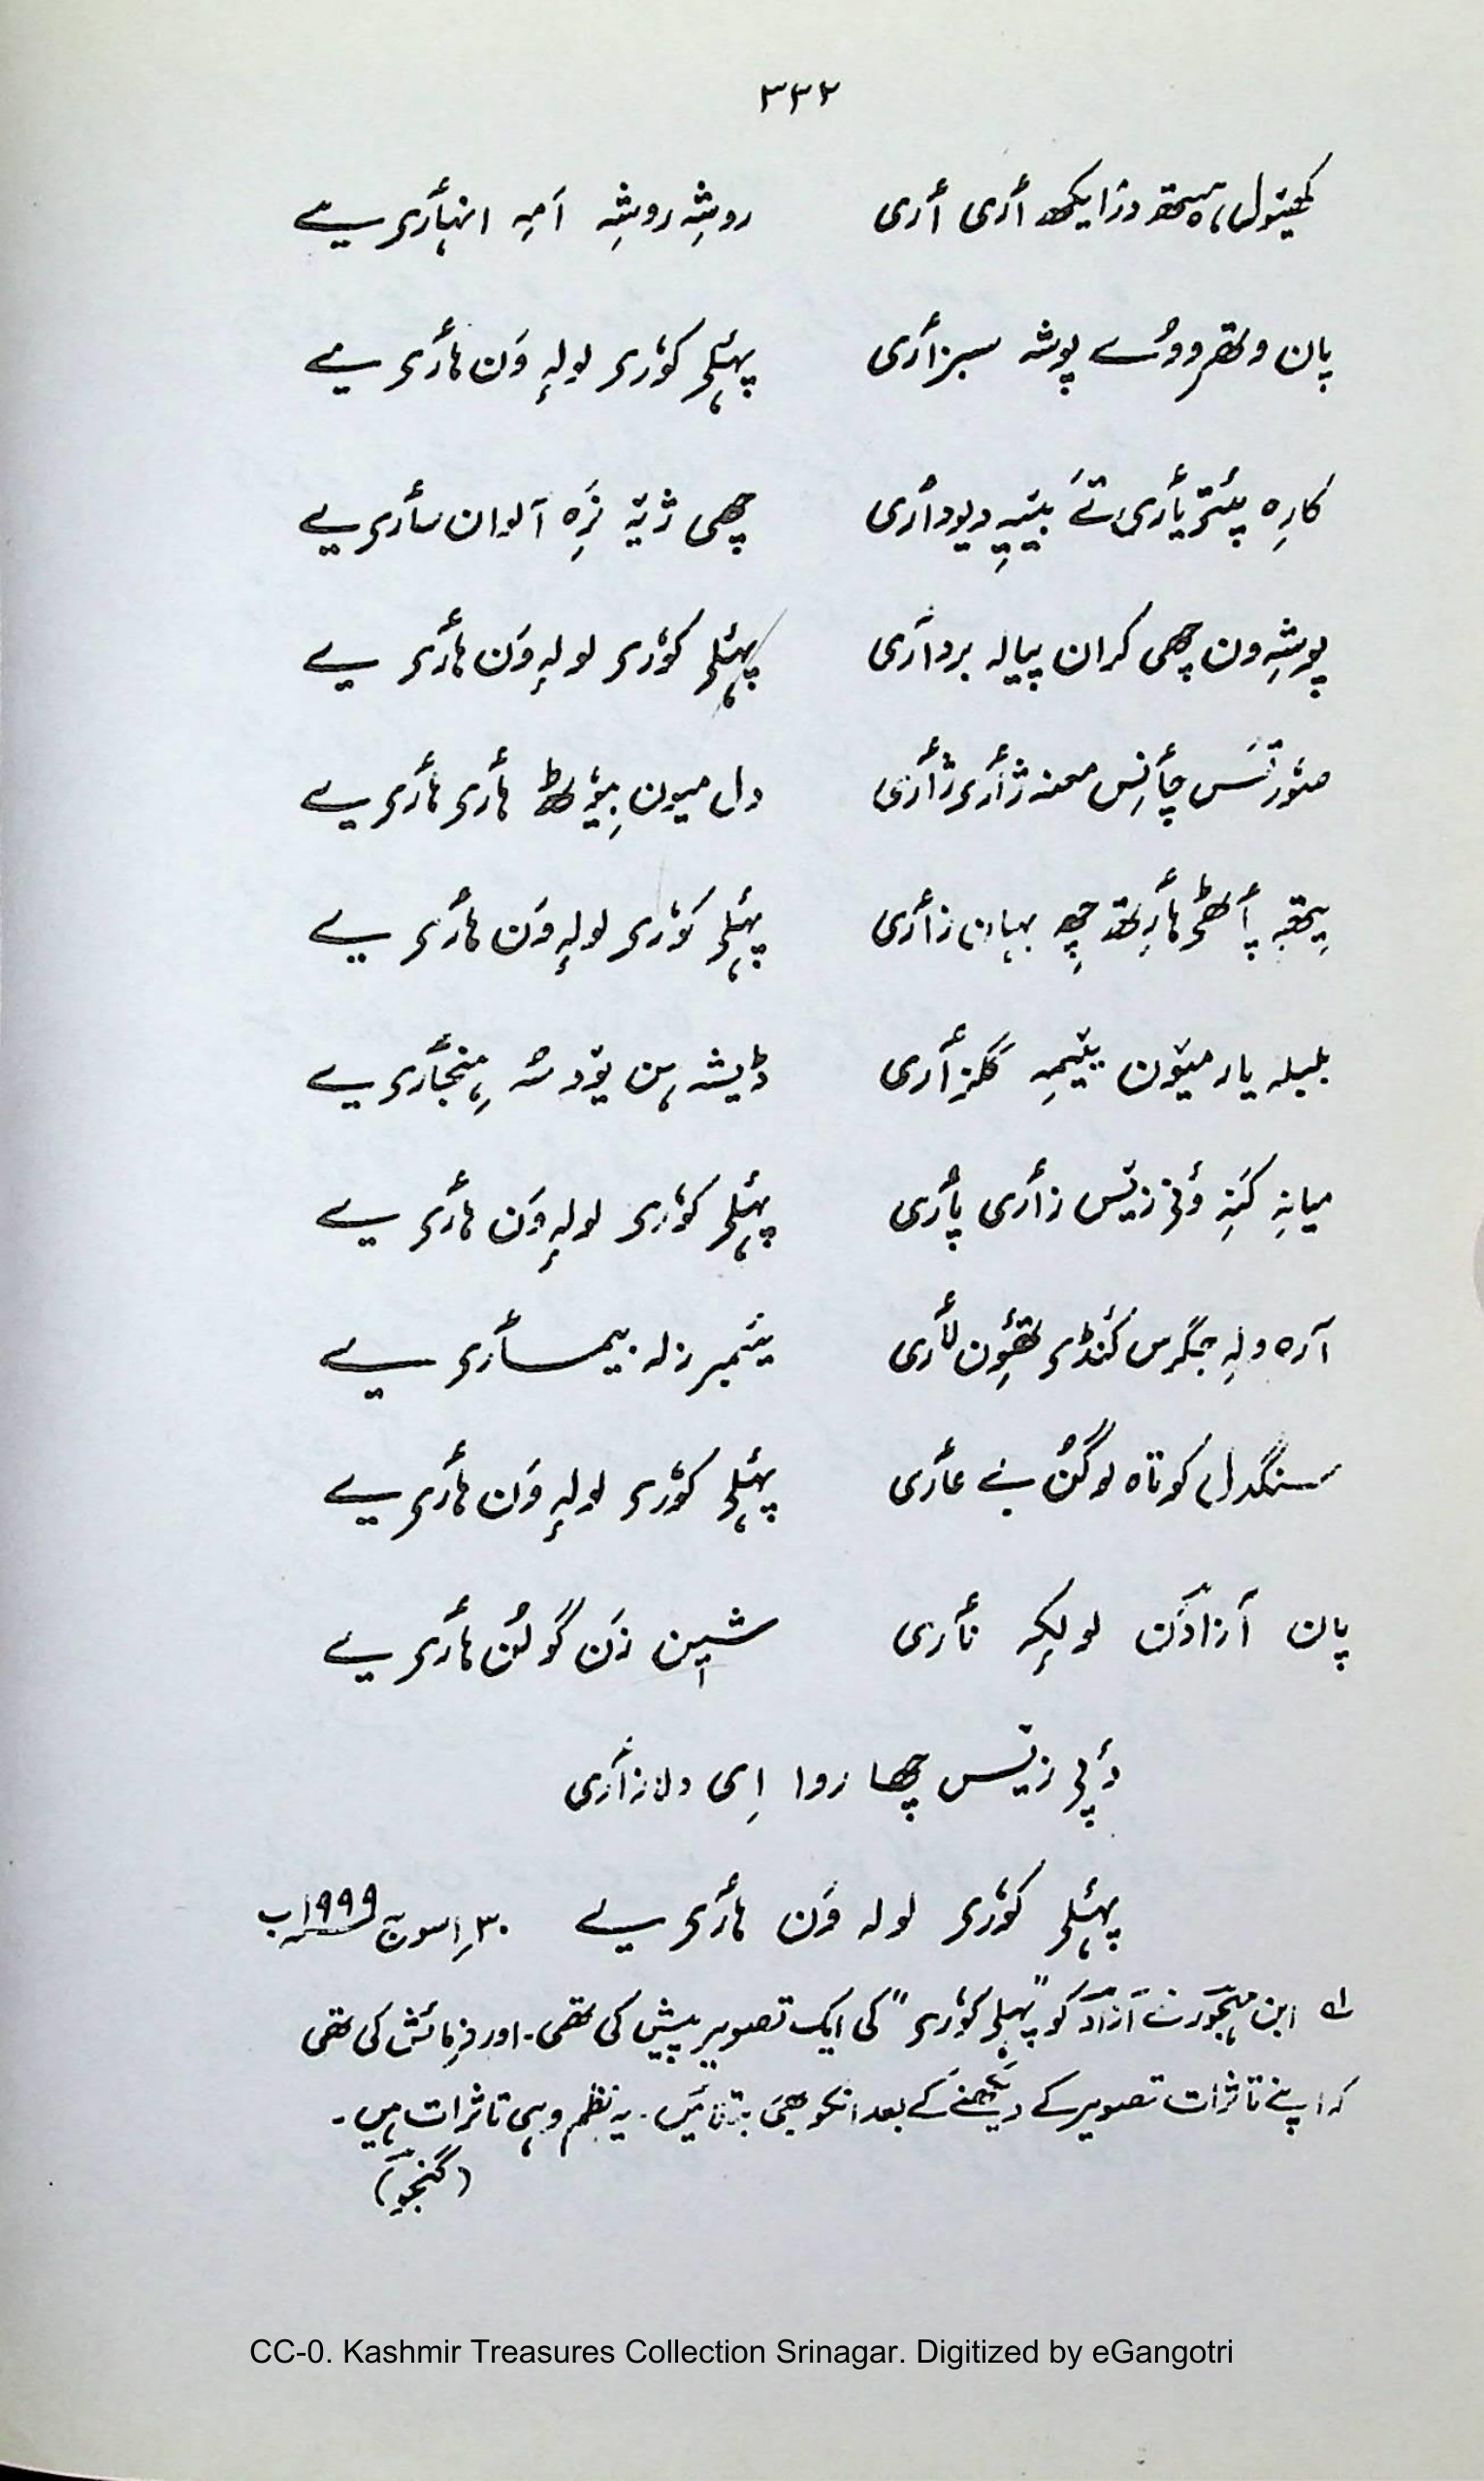 ۳۳۲
کھیتول ہیتھ درٛایکھ أری أری روشہِ روشہِ اَمہِ انہأری یے
پان وتھرووُے پوشہ سبزأری پۂلی کوٗری لولہٕ وَن ہأری یے
کارِہ پیٚتریأری تَے بیٚیہِ دیودأری چھی ژیٚہ زَہِ آلوان سأری یے
پوشہِ ون چھی کران پیالہ بردأری پۂلی کوٗری لولہٕ وَن ہأری یے
صوٗرتَس چأنِس معنہ ژأری ژأری دل میون بیوٗٹھ ہأری ہأری یے
یتھہ پأٹھی ہأرِتھ چھِ بہان زأری پۂلی کوٗری لولہٕ وَن ہأری یے
بلبلہ یار میٚون ییٚیمہِ گلزأری ڈیشہ ہن یوٚد سُہ مِنجأری یے
میانہِ کَنہِ وٚنی زیٚس زأری پأری پۂلی کوٗری لولہٕ وَن ہأری یے
آرہ ولہِ جگرس کَنڈی تھٔوِن لأری ینٚبرزلہ بیمسأری یے
سنگدل کوتاہ لوگُن بے عأری پۂلی کوٗری لولہٕ وَن ہأری یے
پان آزادَن لولکہِ نأری شیٖن زَن گولُن ہأری یے
دٔپی زیٚس چھا روا اِی دل زأری
پۂلی کوٗری لولہ وَن ہأری یے ۳۰؍اسوج ۱۹۹۹ب
لہ ابن مہجورنے آزاد کو "پہلی کوٗری" کی ایک تصویر پیش کی تھی۔ اور فرمائش کی تھی
کہ اپنے تاثرات تصویر کے دیکھنے کے بعد انکو بھی بتائیں۔ یہ نظم وہی تاثرات ہیں۔
(گنجو)
CC-0. Kashmir Treasures Collection Srinagar. Digitized by eGangotri